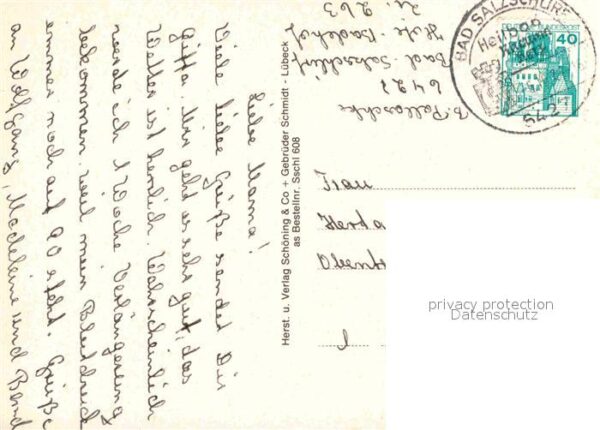 Liebe Mama!
Viele liebe Grüße sendet Dir
Gitta. Mir geht es sehr gut, das
Wetter ist herrlich. Wahrscheinlich
werde ich 1 Woche Verlängerung
bekommen, weil mein Blutdruck
immer noch auf 90 steht. Grüße
an Wolfgang, Madeleine und Bernd
Herst. u. Verlag Schöning & Co + Gebrüder Schmidt - Lübeck
as Bestellnr. Sschl 608
6427
Bad Salzschlirf
Hotel Badehof
Zi. 263
BAD SALZSCHLIRF
Heilbad
BUNDESPOST
40
Frau
Herta
privacy protection
Datenschutz